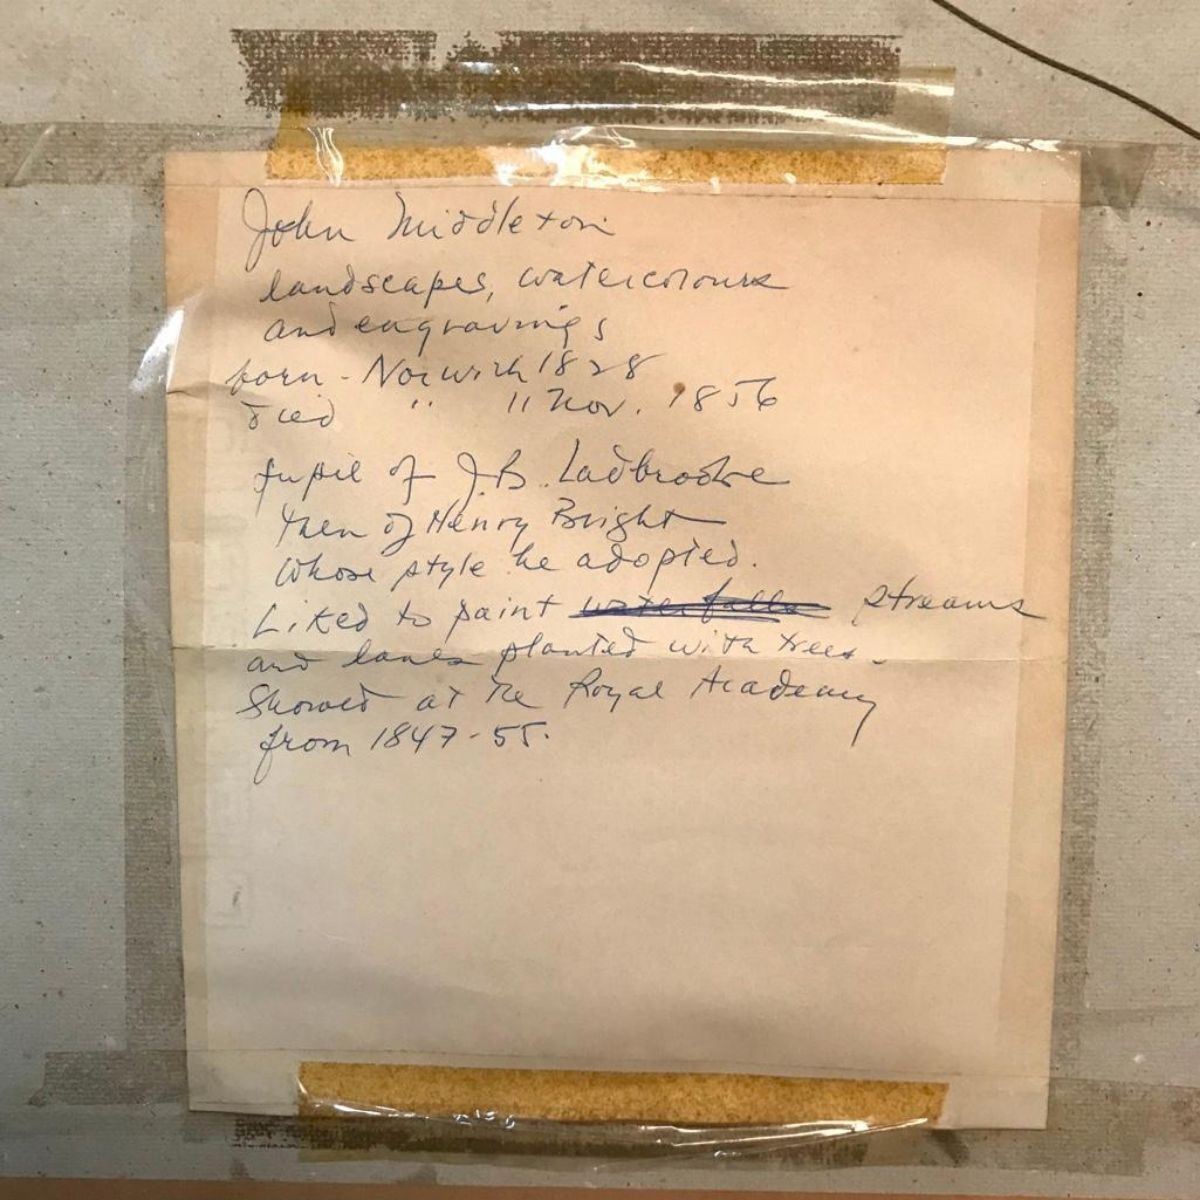 John Middleton
landscapes, watercolours
and engravings
born - Norwich 1828
died " 11 Nov. 1856
pupil of J.B. Ladbrooke
then of Henry Bright
whose style he adopted.
Liked to paint waterfalls streams
and lanes planted with trees.
Showed at the Royal Academy
from 1847-55.